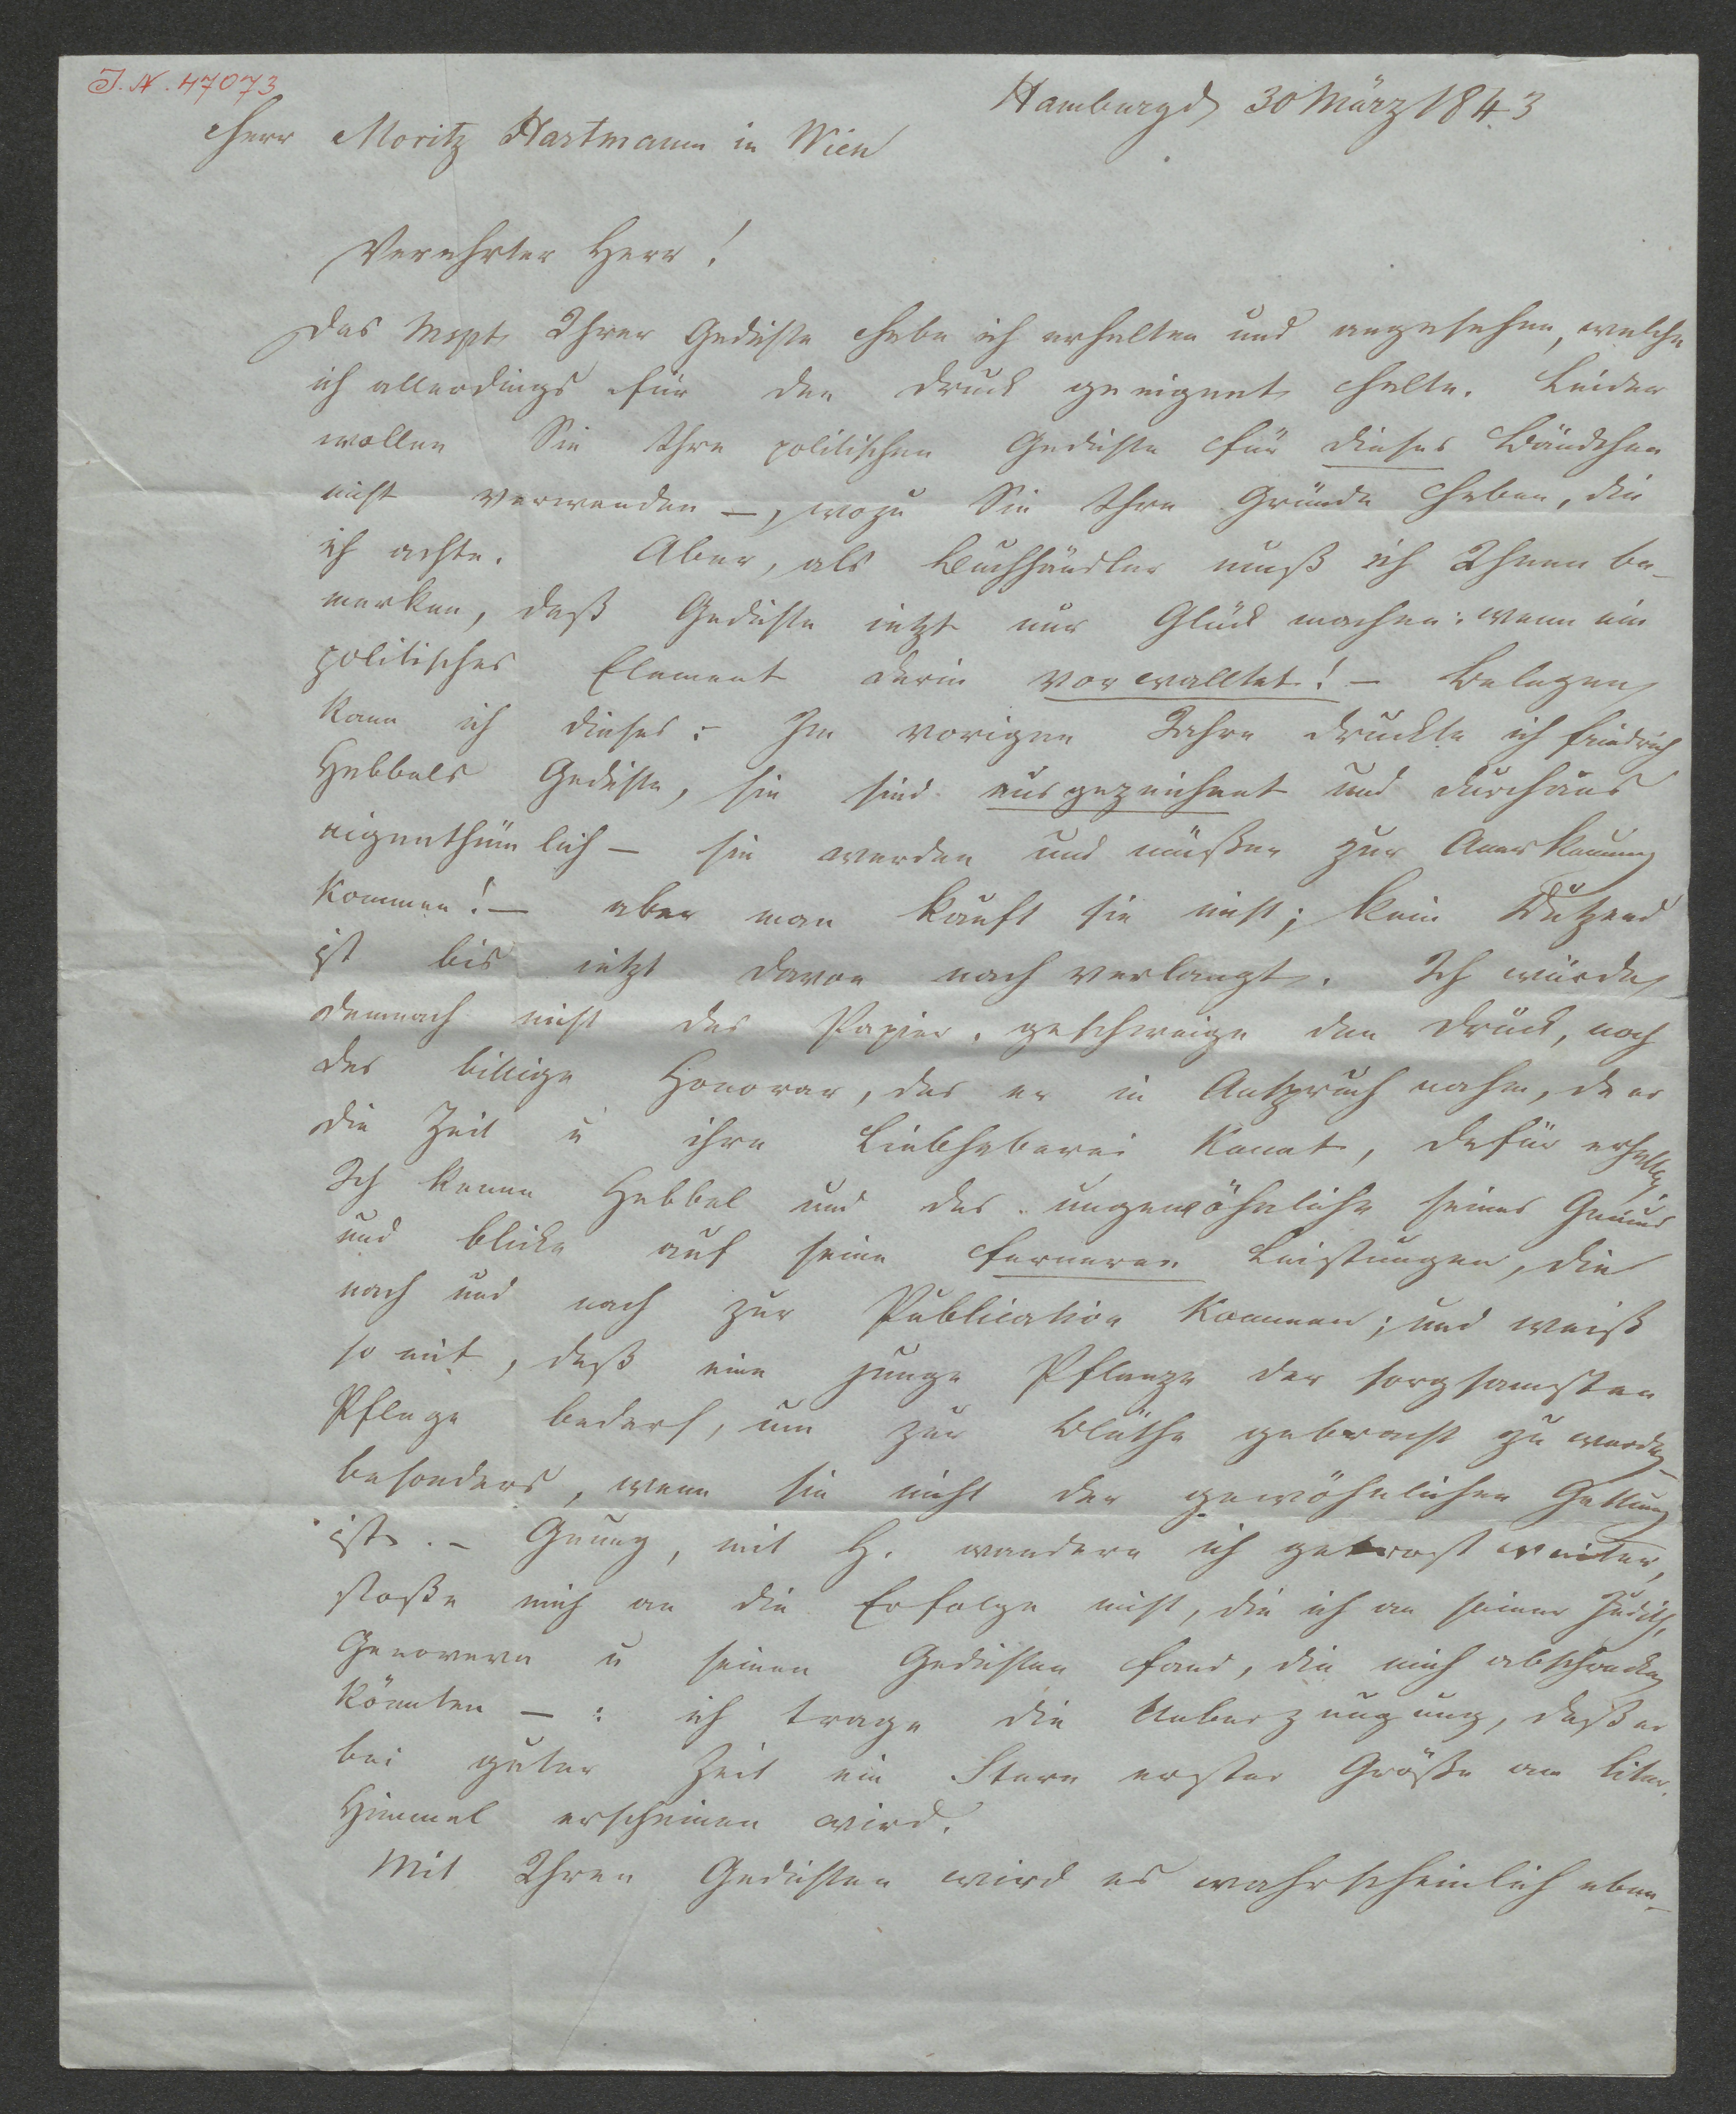 J. N. 47073
Hamburg d 30 März 1843
Herr Moritz Hartmann in Wien
Verehrter Herr!
Das Mspt Ihrer Gedichte habe ich erhalten und angesehen, welche
ich allerdings für den Druck geeignet halte. Leider
wollen Sie Ihre politischen Gedichte für dieses Bändchen
nicht verwenden –, wozu Sie Ihre Gründe haben, die
ich achte. Aber, als Buchhändler muß ich Ihnen be-
merken, daß Gedichte jetzt nur Glück machen: wenn ein
politisches Element darin vorwalltet! – Belegen
kann ich dieses:- Im vorigen Jahre druckte ich Friedrich
Hebbels Gedichte, sie sind ausgezeichnet und durchaus
eigenthümlich – sie werden und müßen zur Anerkennung
kommen! – aber man kauft sie nicht; kein Dutzend
ist bis jetzt davon nach verlangt. Ich würde
demnach nicht das Papier, geschweige den Druck, noch
das billige Honorar, das er in Anspruch nahm, da er
die Zeit u ihre Liebhaberei kannt, dafür erhalten.
Ich kenne Hebbel und das ungewöhnliche seines Genius
und blicke auf seine ferneren Leistungen, die
nach und nach zur Publication kommen; und weiß
somit, daß eine junge Pflanze der sorgsamsten
Pflege bedarf, um zur Blüthe gebracht zu werden
besonders, wenn sie nicht der gewöhnlichen Gattung
ist. – Genug, mit H. wandere ich getrost weiter,
stoße mich an die Erfolge nicht, die ich an seiner Judith,
Genoveva u seinen Gedichten fand, die mich abschrecken
könnten – : ich trage die Ueberzeugung, daß er
bei guter Zeit ein Stern erster Größe am liter.
Himmel erscheinen wird.
Mit Ihren Gedichten wird es wahrscheinlich eben-